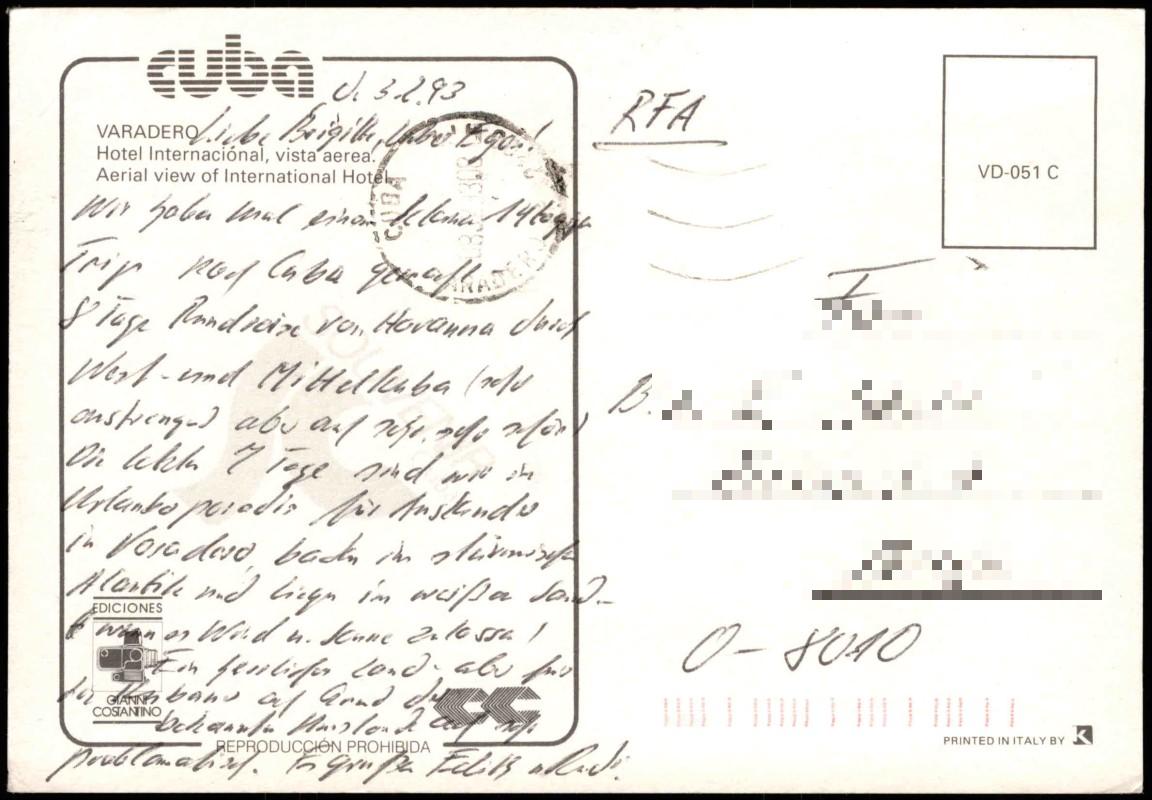 cuba
d. 3.2.93
VARADERO
Liebe Brigitte, lieber Egon!
Hotel Internaciónal, vista aerea.
Aerial view of International Hotel
Wir haben mal einen kleinen 14tägigen
Trip nach Cuba gemacht.
8 Tage Rundreise von Havanna durch
West- und Mittelkuba (sehr
anstrengend aber auch sehr, sehr schön)
Die letzten 7 Tage sind wir im
Urlaubsparadis für Ausländer
in Varadero, baden im stürmischen
Atlantik und liegen im weißen Sand -
wenn es Wind u. Sonne zulassen!
Ein herrliches Land - aber für
die Kubaner auf Grund der
bekannten Umstände auch sehr
problematisch. Es grüßen
REPRODUCCIÓN PROHIBIDA
EDICIONES
GIANNI
COSTANTINO
CUBA
VARADERO
SOUVENIR
RFA
VD-051 C
B.
O-8010
PRINTED IN ITALY BY K